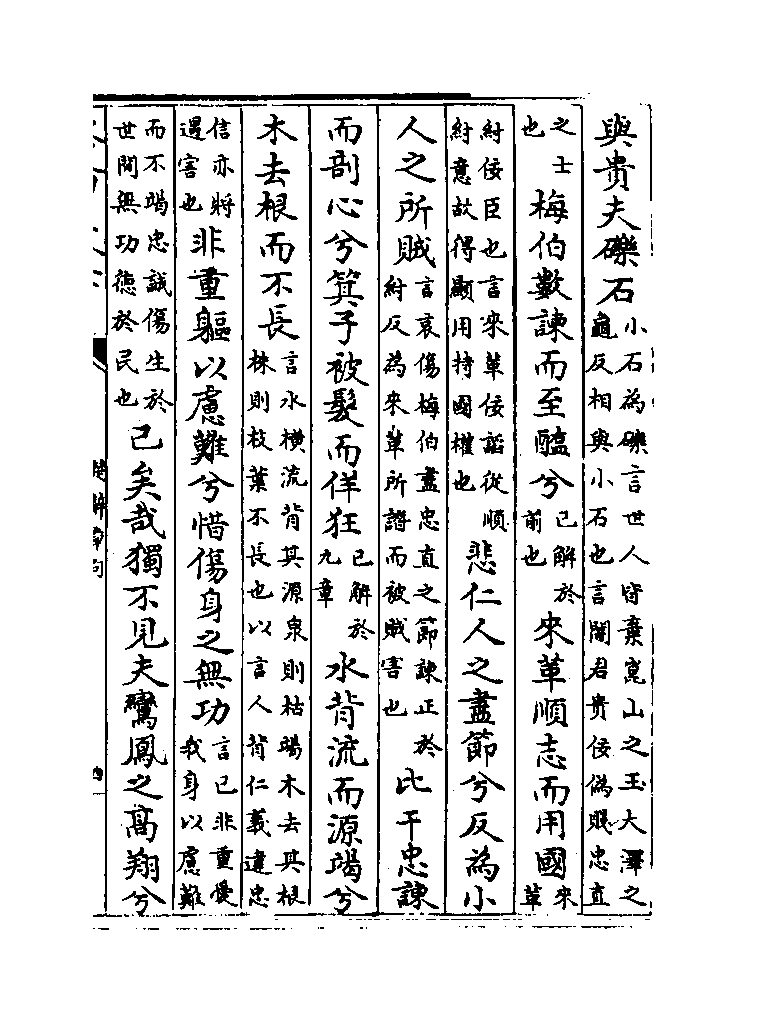 與貴夫礫石小石為礫言世人皆棄崑山之玉大澤之龜反相與小石也言闇君貴佞偽賤忠直
之士也梅伯數諫而至醢兮已解於前也來革順志而用國來革
紂佞臣也言來革佞諂從順紂意故得顯用持國權也悲仁人之盡節兮反為小
人之所賊言哀傷梅伯盡忠直之節諫正於紂反為來革所譖而被賊害也比干忠諫
而剖心兮箕子被髮而佯狂已解於九章水背流而源竭兮
木去根而不長言水橫流背其源泉則枯竭木去其根株則枝葉不長也以言人背仁義違忠
信亦將遇害也非重軀以慮難兮惜傷身之無功言已非重愛我身以慮難
而不竭忠誠傷生於世間無功德於民也已矣哉獨不見夫鸞鳳之高翔兮
楚辭章句